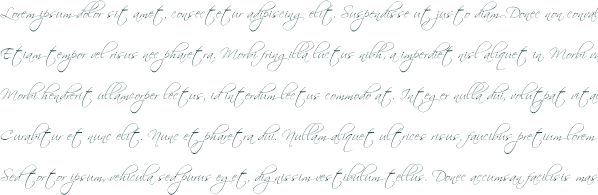 Lorem ipsum dolor sit amet, consectetur adipiscing elit. Suspendisse ut justo diam. Donec non conval
Etiam tempor vel risus nec pharetra. Morbi fringilla luctus nibh, a imperdiet nisl aliquet in. Morbi
Morbi hendrerit ullamcorper lectus, id interdum lectus commodo at. Integer nulla dui, volutpat vitae
Curabitur et nunc elit. Nunc et pharetra dui. Nullam aliquet ultrices risus, faucibus pretium lorem
Sed tortor ipsum, vehicula sed purus eget, dignissim vestibulum tellus. Donec accumsan facilisis mas